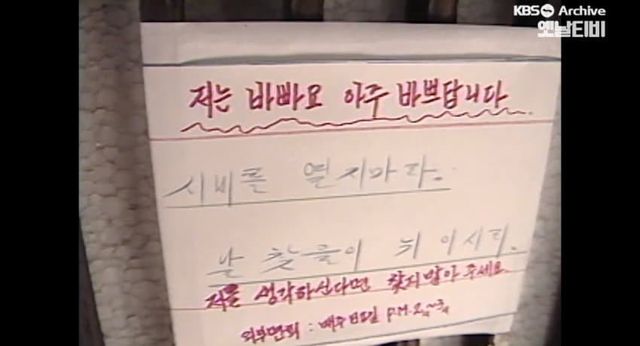 KBS Archive
옛날티비
저는 바빠요 아주 바쁘답니다
시비를 열지마라.
날 찾을이 뉘 이시리.
저를 생각하신다면 찾지말아 주세요
외부면회 : 매주 일 P.M. 2~3